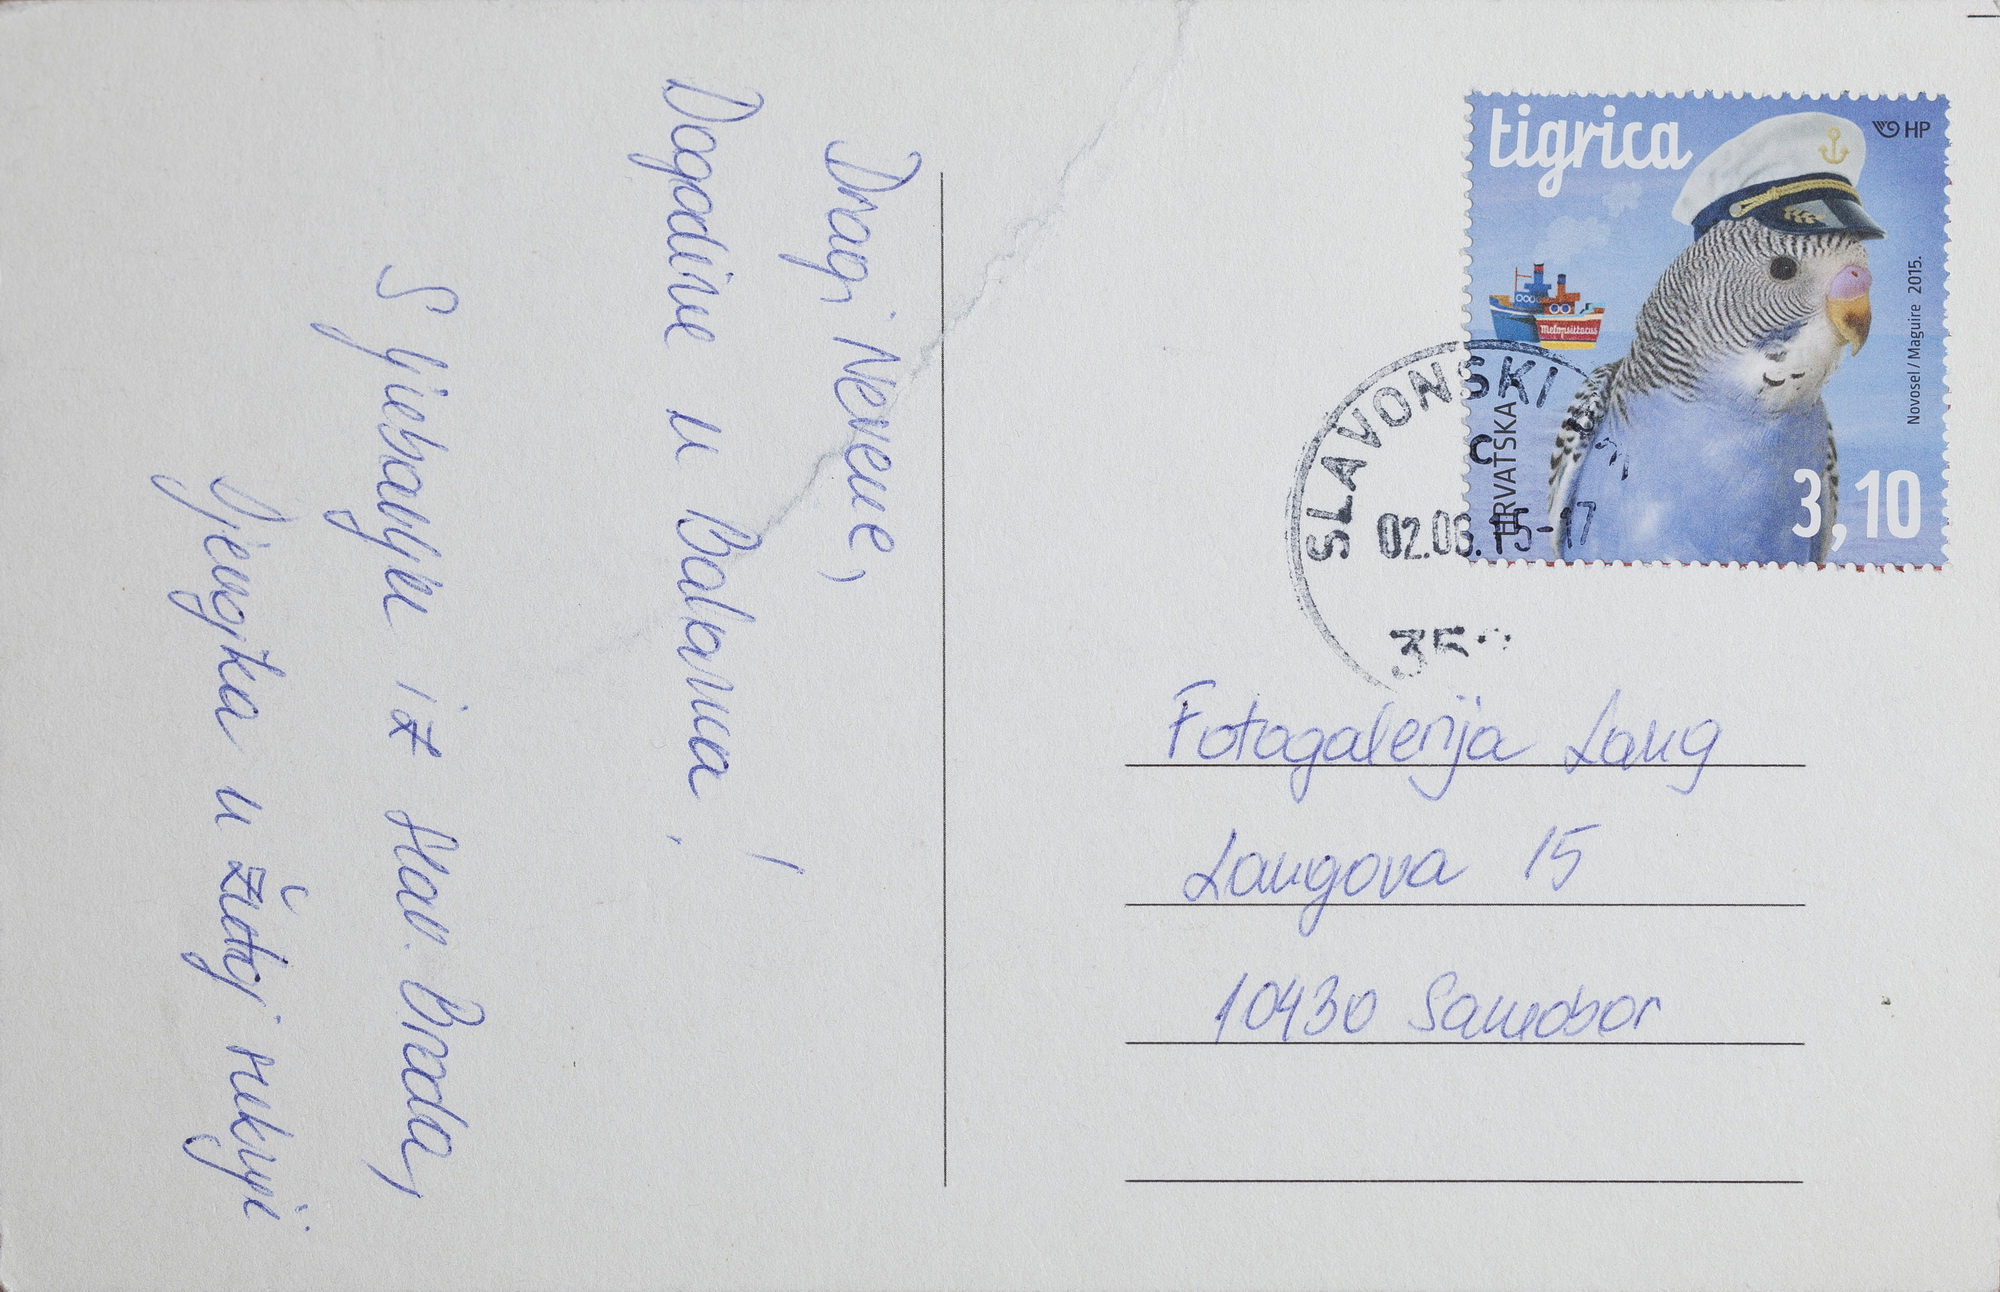 Dragi Nevene,
Dogodine u Balama!
S ljubavlju iz Slav. Broda,
Djevojka u žutoj suknji
tigrica
HP
Melopsittacus
HRVATSKA
Novosel / Maguire 2015.
3,10
SLAVONSKI
02.06.15-17
Fotogalerija Lang
Langova 15
10430 Samobor